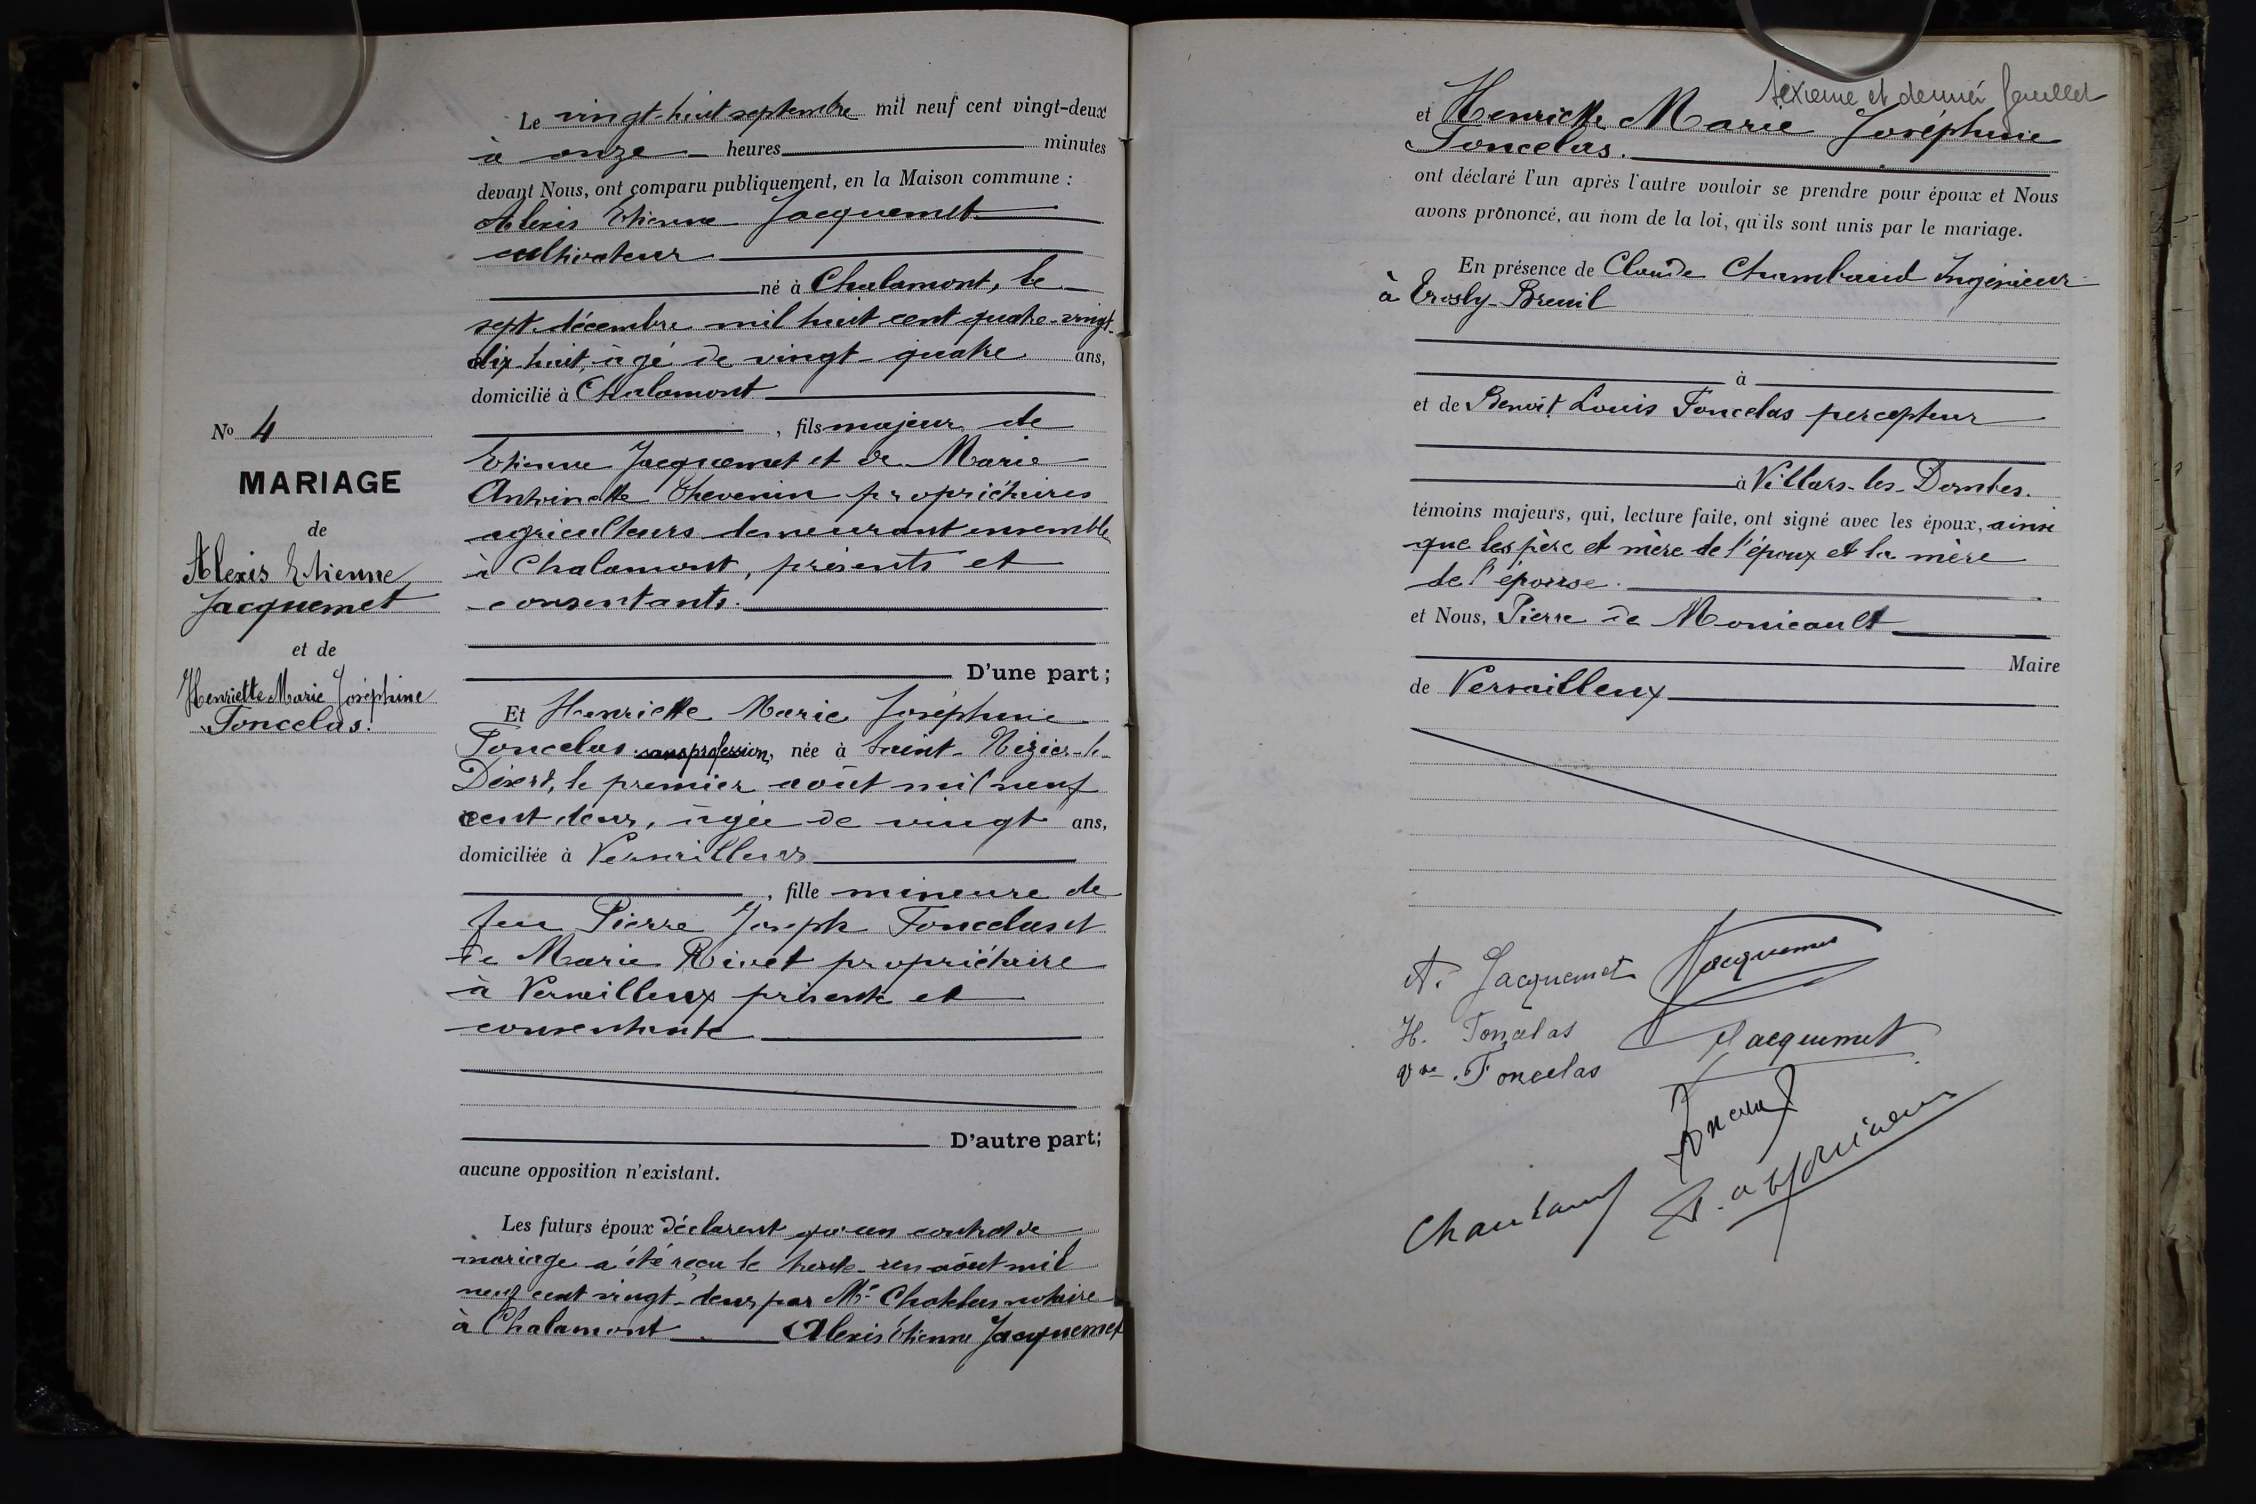 Le vingt-huit septembre mil neuf cent vingt-deux
à onze heures minutes
devant Nous, ont comparu publiquement, en la Maison commune :
Alexis Etienne Jacquemet
cultivateur
né à Chalamont, le
sept décembre mil huit cent quatre-vingt-
dix huit, âgé de vingt-quatre ans,
domicilié à Chalamont
, fils majeur de
Etienne Jacquemet et de Marie
Antoinette Thevenin propriétaires
agriculteurs demeurant ensemble
à Chalamont, présents et
consentants.
D'une part ;
Et Henriette Marie Joséphine
Foncelas sans profession, née à Saint-Nizier-le-
Désert, le premier août mil neuf
cent deux, âgée de vingt ans,
domiciliée à Versailleux
, fille mineure de
feu Pierre Joseph Foncelas et
de Marie Rivet propriétaire
à Versailleux présente et
consentante
D'autre part;
aucune opposition n'existant.
Les futurs époux déclarent qu'un contrat de
mariage a été reçu le trente-un août mil
neuf cent vingt-deux par Me notaire
à Chalamont Alexis Etienne Jacquemet
No 4
MARIAGE
de
Alexis Etienne
Jacquemet
et de
Henriette Marie Joséphine
Foncelas.
sixième et dernier feuillet
et Henriette Marie Joséphine
Foncelas.
ont déclaré l'un après l'autre vouloir se prendre pour époux et Nous
avons prononcé, au nom de la loi, qu'ils sont unis par le mariage.
En présence de Claude Chambaud Ingénieur
à Trosly-Breuil
à
et de Benoit Louis Foncelas percepteur
à Villars-les-Dombes.
témoins majeurs, qui, lecture faite, ont signé avec les époux, ainsi
que les père et mère de l'époux et la mère
de l'épouse.
et Nous, Pierre de Monicault
Maire
de Versailleux
A. Jacquemet Jacquemet
H. Foncelas Jacquemet
Vve Foncelas
Foncelas
Chambaud P. de Monicault